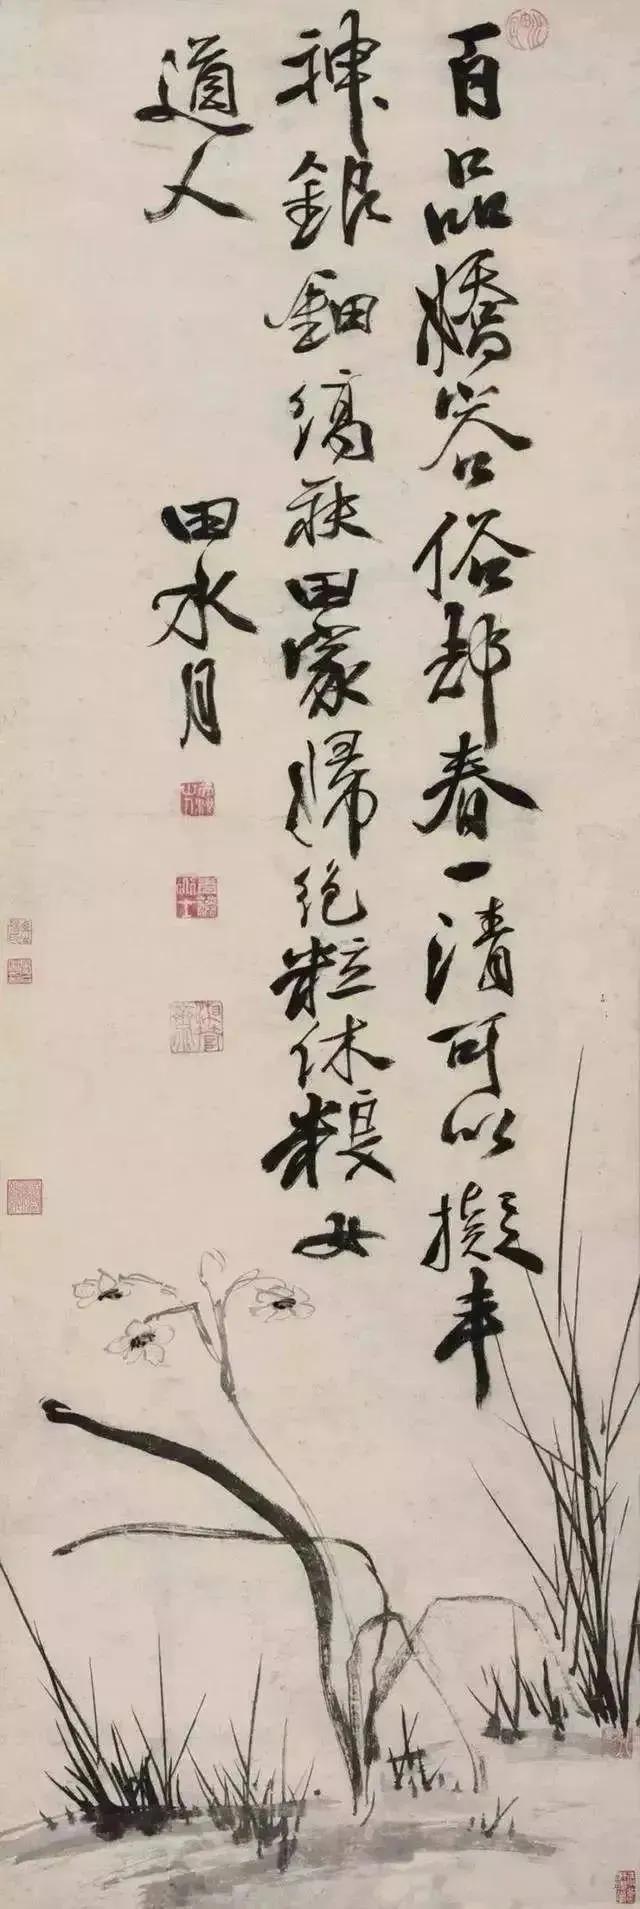 百品嬌容俗却春一清可以擬丰
神銀鈿縞袂田家婦絶粒休糧女
道人
田水月
湘管齋